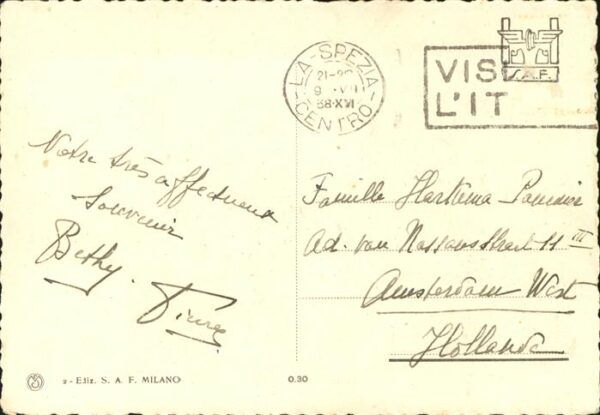 LA-SPEZIA
21-22
9 · VII
38·XVI
CENTRO
VISI
L'IT
S.A.F.
Notre très affectueux
souvenir
Bethy.
Famille Hartema-
Ad. van Nassaustraat 11 III
Amsterdam West
Hollande
2 - Ediz. S. A. F. MILANO
0.30